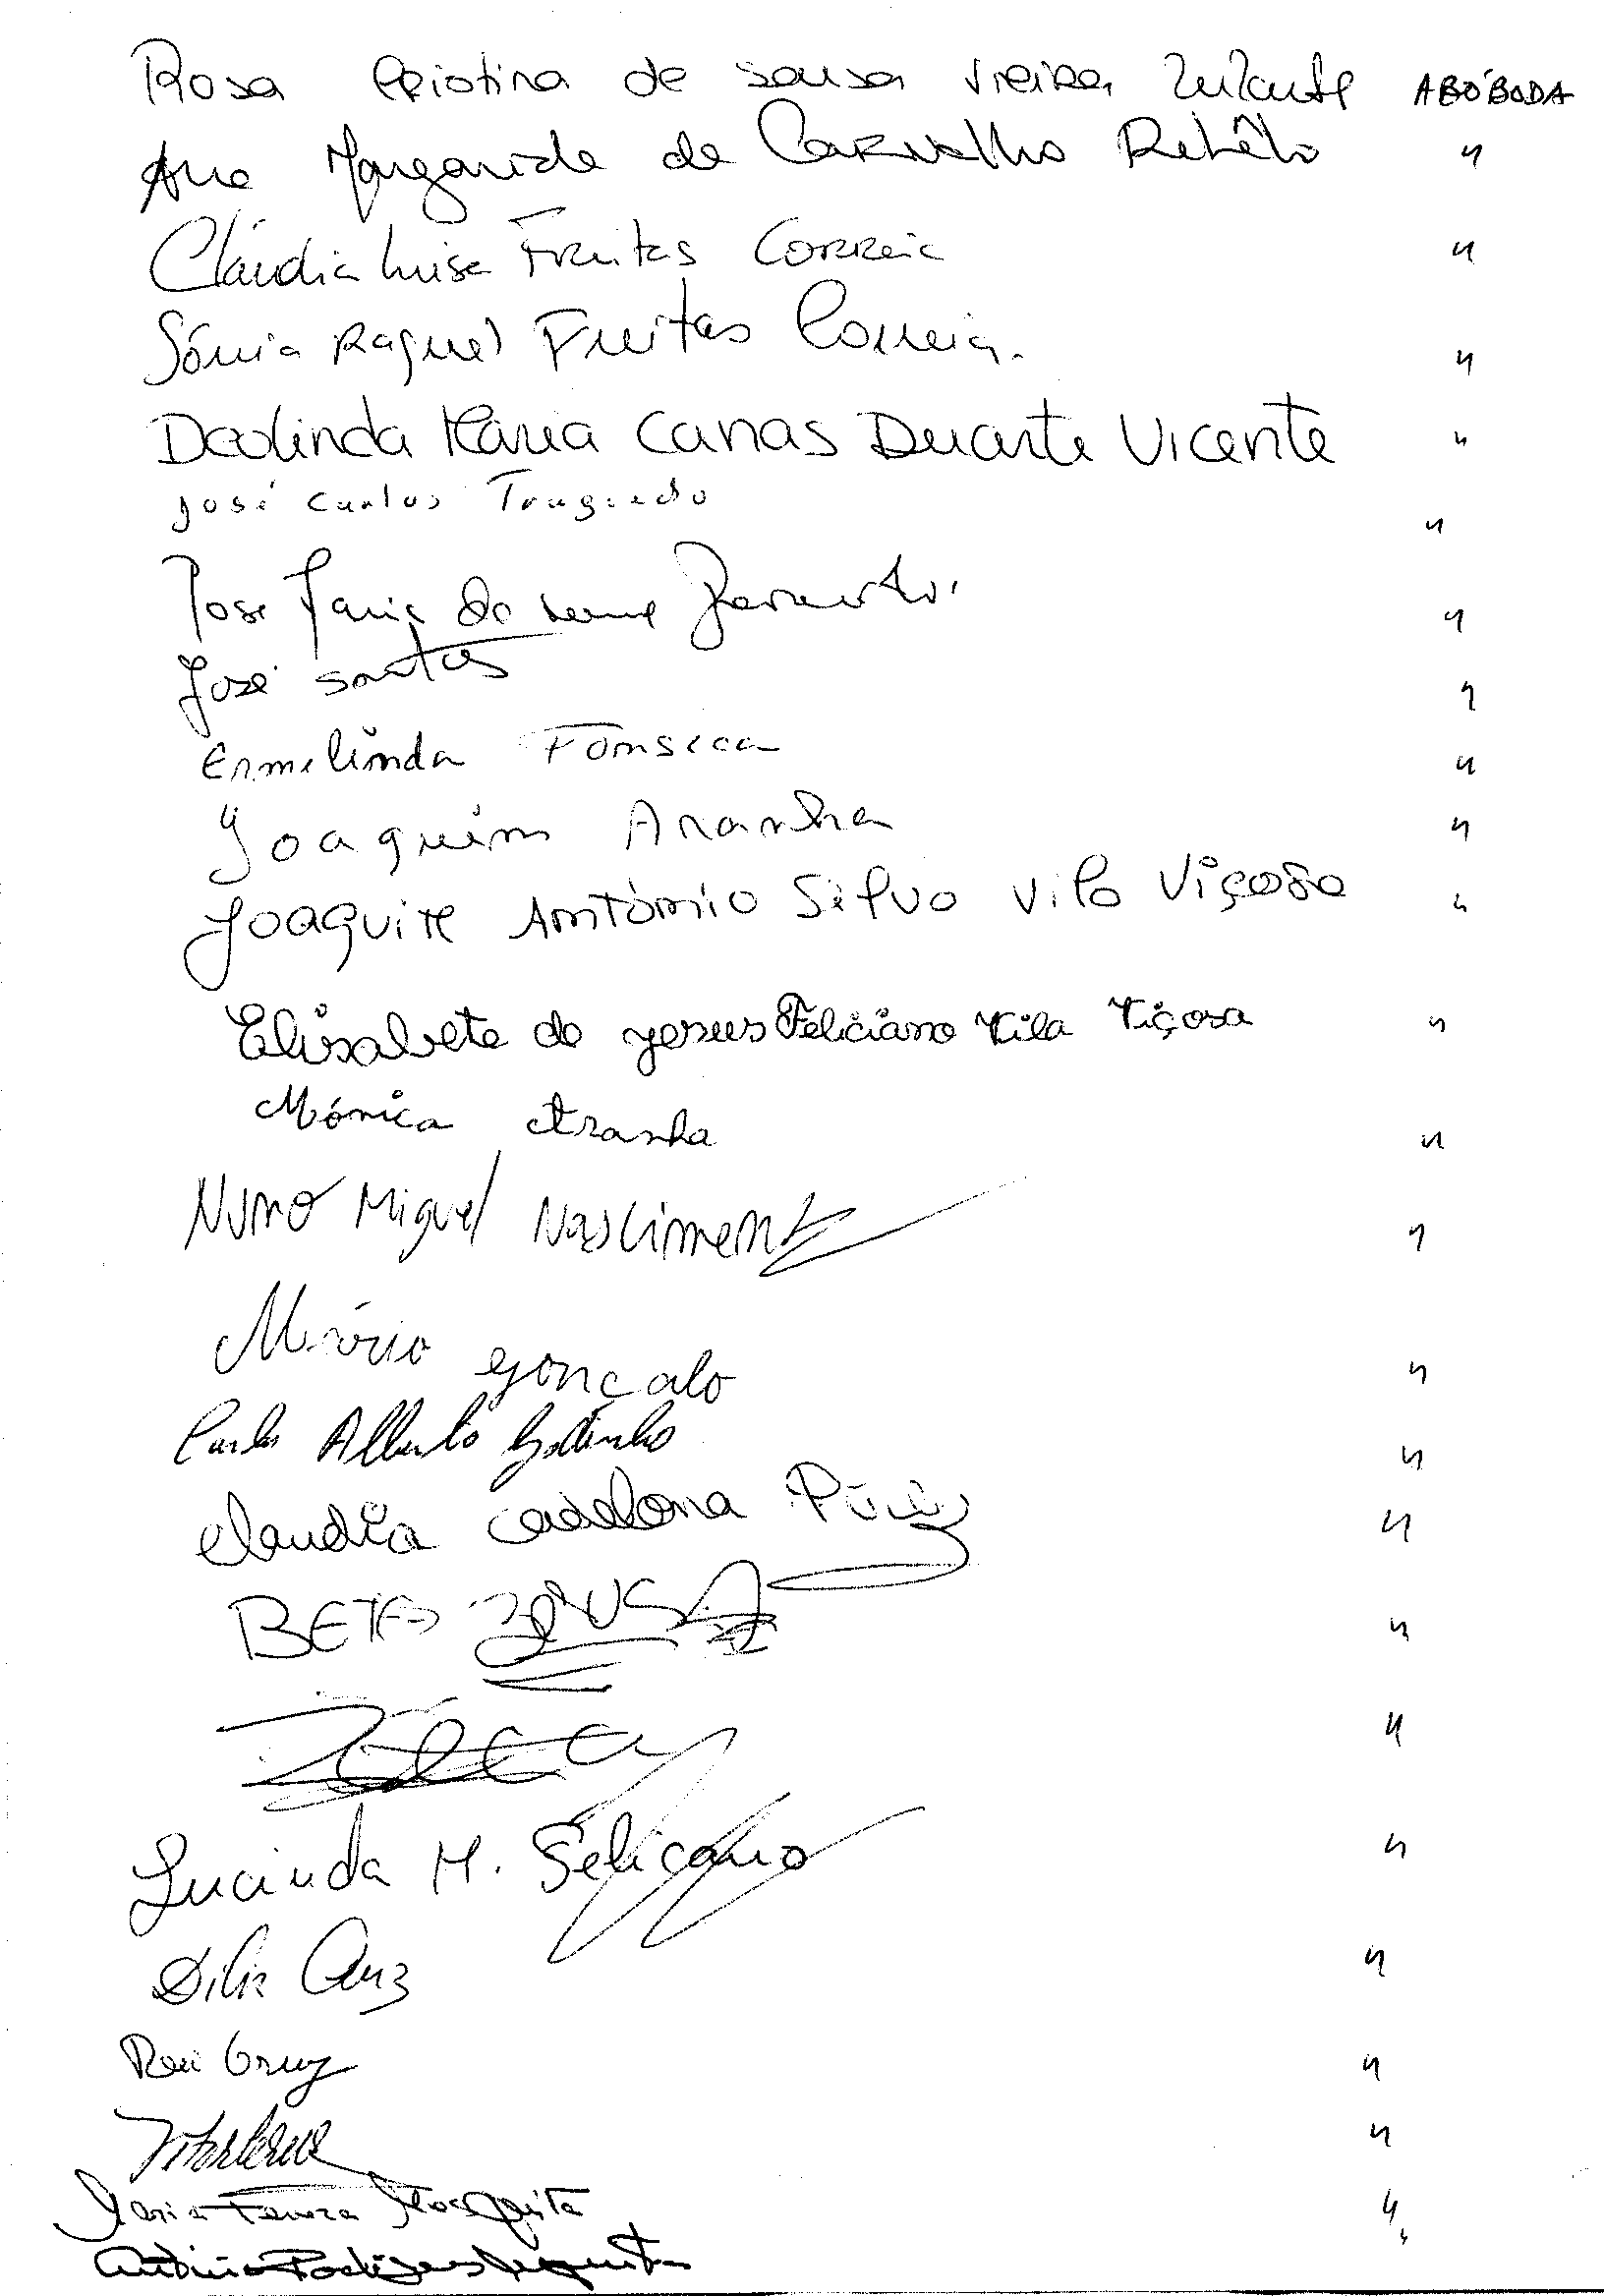 Rosa Cristina de Sousa Vieira Infante ABÓBODA
Ana Margarida de Carvalho Rebêlo "
Cláudia Luisa Freitas Correia "
Sónia Raquel Freitas Correia. "
Deolinda Maria Canas Duarte Vicente "
José Carlos Traguedo "
José Maria "
José Santos "
Ermelinda Fonseca "
Joaquim Aranha "
Joaquim António Silva Vila Viçosa "
Elisabete de Jesus Feliciano Vila Viçosa "
Mónica Aranha "
Nuno Miguel Nascimento "
Mário Gonçalo "
Carlos Alberto Godinho "
Claudia Cadelona Pires "
"
"
Lucinda M. Feliciano "
Dília Cruz "
Rui Cruz "
Marlene "
Maria Tereza Mesquita "
António Rodrigues Mesquita "